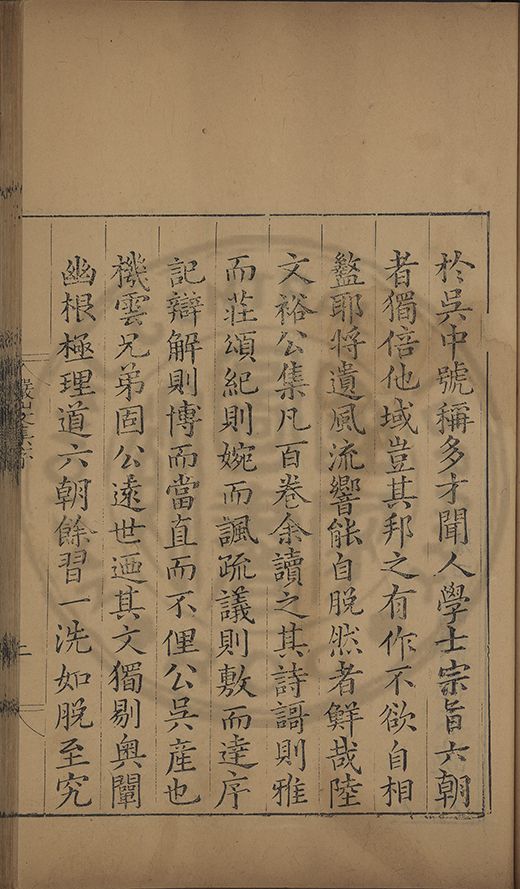 於吳中號稱多才聞人學士宗旨六朝
者獨倍他域豈其邦之有作不欲自相
盭耶將遺風流響能自脫然者鮮哉陸
文裕公集凡百卷余讀之其詩謌則雅
而莊頌紀則婉而諷疏議則敷而達序
記辯解則博而當直而不俚公吳產也
機雲兄弟固公遠世迺其文獨剔奧闡
幽根極理道六朝餘習一洗如脫至究